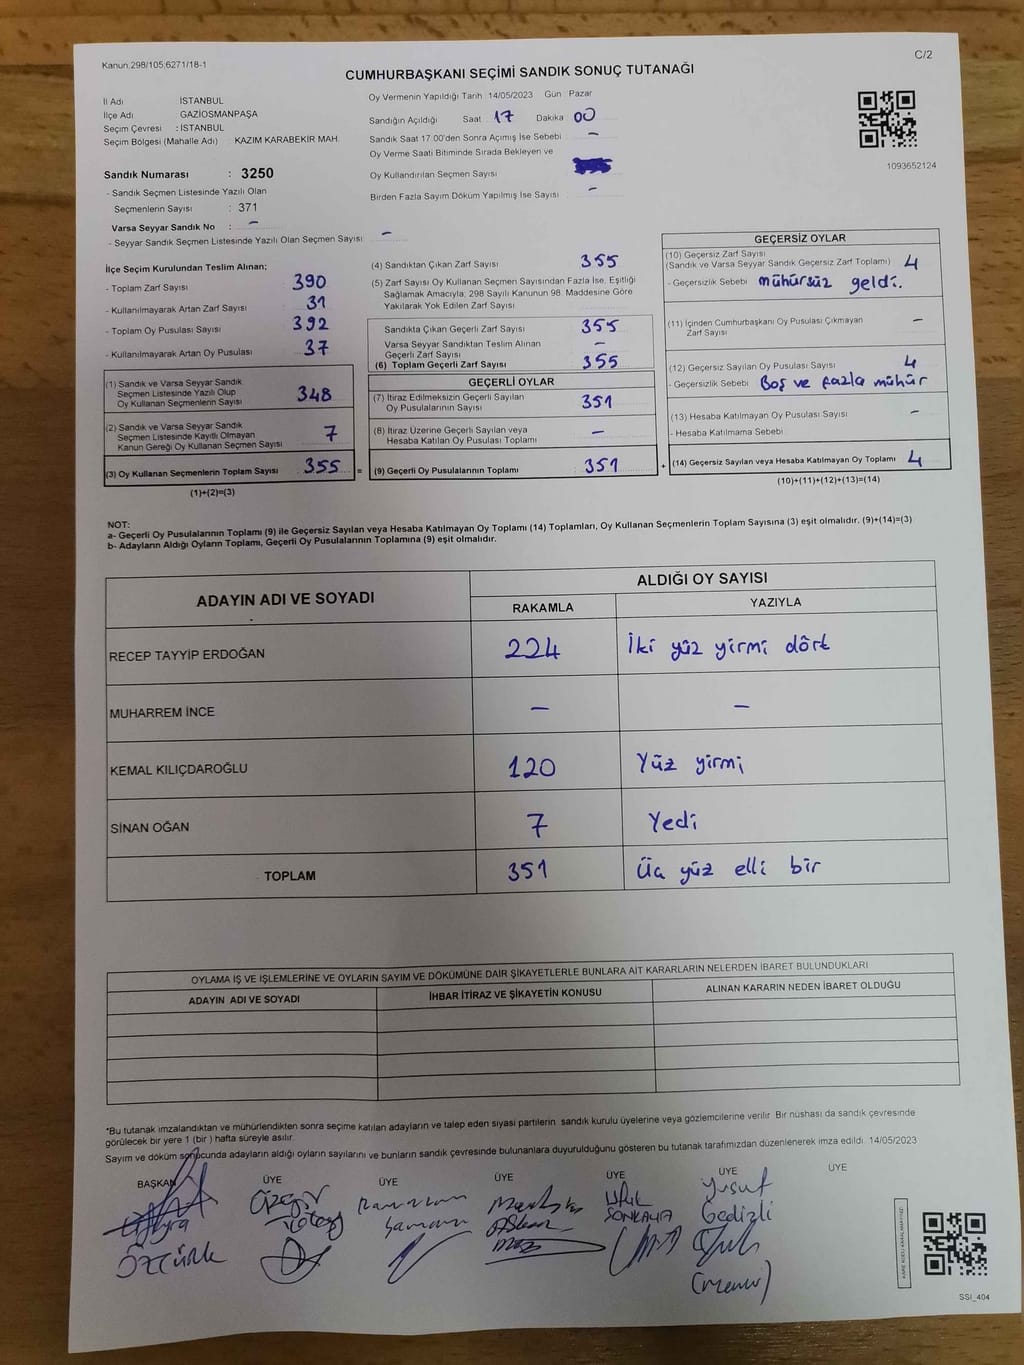 Kanun.298/105;6271/18-1
C/2
CUMHURBAŞKANI SEÇİMİ SANDIK SONUÇ TUTANAĞI
İl Adı İSTANBUL
İlçe Adı GAZİOSMANPAŞA
Seçim Çevresi : İSTANBUL
Seçim Bölgesi (Mahalle Adı) KAZIM KARABEKİR MAH.
Sandık Numarası : 3250
- Sandık Seçmen Listesinde Yazılı Olan
Seçmenlerin Sayısı : 371
Varsa Seyyar Sandık No : –
- Seyyar Sandık Seçmen Listesinde Yazılı Olan Seçmen Sayısı –
Oy Vermenin Yapıldığı Tarih 14/05/2023 Gün Pazar
Sandığın Açıldığı Saat 17 Dakika 00
Sandık Saat 17.00'den Sonra Açımış İse Sebebi –
Oy Verme Saati Bitiminde Sırada Bekleyen ve
Oy Kullandırılan Seçmen Sayısı
Birden Fazla Sayım Döküm Yapılmış İse Sayısı –
1093652124
İlçe Seçim Kurulundan Teslim Alınan;
- Toplam Zarf Sayısı 390
- Kullanılmayarak Artan Zarf Sayısı 31
- Toplam Oy Pusulası Sayısı 392
- Kullanılmayarak Artan Oy Pusulası 37
(1) Sandık ve Varsa Seyyar Sandık
Seçmen Listesinde Yazılı Olup
Oy Kullanan Seçmenlerin Sayısı 348
(2) Sandık ve Varsa Seyyar Sandık
Seçmen Listesinde Kayıtlı Olmayan
Kanun Gereği Oy Kullanan Seçmen Sayısı 7
(3) Oy Kullanan Seçmenlerin Toplam Sayısı 355 =
(1)+(2)=(3)
(4) Sandıktan Çıkan Zarf Sayısı 355
(5) Zarf Sayısı Oy Kullanan Seçmen Sayısından Fazla İse, Eşitliği
Sağlamak Amacıyla; 298 Sayılı Kanunun 98. Maddesine Göre
Yakılarak Yok Edilen Zarf Sayısı
Sandıkta Çıkan Geçerli Zarf Sayısı 355
Varsa Seyyar Sandıktan Teslim Alınan –
Geçerli Zarf Sayısı
(6) Toplam Geçerli Zarf Sayısı 355
GEÇERLİ OYLAR
(7) İtiraz Edilmeksizin Geçerli Sayılan
Oy Pusulalarının Sayısı 351
(8) İtiraz Üzerine Geçerli Sayılan veya
Hesaba Katılan Oy Pusulası Toplamı –
(9) Geçerli Oy Pusulalarının Toplamı 351 +
GEÇERSİZ OYLAR
(10) Geçersiz Zarf Sayısı
(Sandık ve Varsa Seyyar Sandık Geçersiz Zarf Toplamı) 4
- Geçersizlik Sebebi mühürsüz geldi.
(11) İçinden Cumhurbaşkanı Oy Pusulası Çıkmayan
Zarf Sayısı –
(12) Geçersiz Sayılan Oy Pusulası Sayısı 4
- Geçersizlik Sebebi Boş ve fazla mühür
(13) Hesaba Katılmayan Oy Pusulası Sayısı –
- Hesaba Katılmama Sebebi
(14) Geçersiz Sayılan veya Hesaba Katılmayan Oy Toplamı 4
(10)+(11)+(12)+(13)=(14)
NOT:
a- Geçerli Oy Pusulalarının Toplamı (9) ile Geçersiz Sayılan veya Hesaba Katılmayan Oy Toplamı (14) Toplamları, Oy Kullanan Seçmenlerin Toplam Sayısına (3) eşit olmalıdır. (9)+(14)=(3)
b- Adayların Aldığı Oyların Toplamı, Geçerli Oy Pusulalarının Toplamına (9) eşit olmalıdır.
ADAYIN ADI VE SOYADI
ALDIĞI OY SAYISI
RAKAMLA YAZIYLA
RECEP TAYYİP ERDOĞAN 224 İki yüz yirmi dört
MUHARREM İNCE – –
KEMAL KILIÇDAROĞLU 120 Yüz yirmi
SİNAN OĞAN 7 Yedi
TOPLAM 351 Üç yüz elli bir
OYLAMA İŞ VE İŞLEMLERİNE VE OYLARIN SAYIM VE DÖKÜMÜNE DAİR ŞİKAYETLERLE BUNLARA AİT KARARLARIN NELERDEN İBARET BULUNDUKLARI
ADAYIN ADI VE SOYADI İHBAR İTİRAZ VE ŞİKAYETİN KONUSU ALINAN KARARIN NEDEN İBARET OLDUĞU
*Bu tutanak imzalandıktan ve mühürlendikten sonra seçime katılan adayların ve talep eden siyasi partilerin sandık kurulu üyelerine veya gözlemcilerine verilir Bir nüshası da sandık çevresinde
görülecek bir yere 1 (bir) hafta süreyle asılır.
Sayım ve döküm sonucunda adayların aldığı oyların sayılarını ve bunların sandık çevresinde bulunanlara duyurulduğunu gösteren bu tutanak tarafımızdan düzenlenerek imza edildi. 14/05/2023
BAŞKAN ÜYE ÜYE ÜYE ÜYE ÜYE ÜYE
ÖZTÜRK
Ramazan
Yusuf
Gedizli
SSİ_404